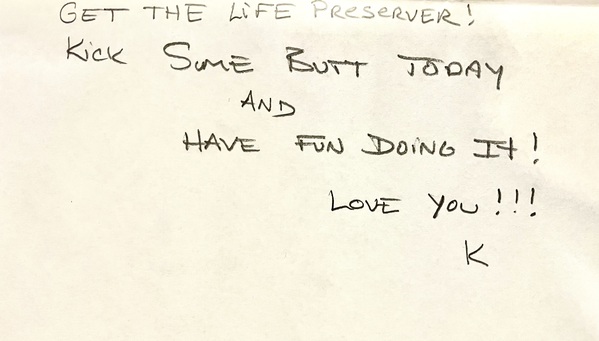 GET THE LIFE PRESERVER!
Kick SOME BUTT TODAY
AND
HAVE FUN DOING It!
LOVE YOU!!!
K